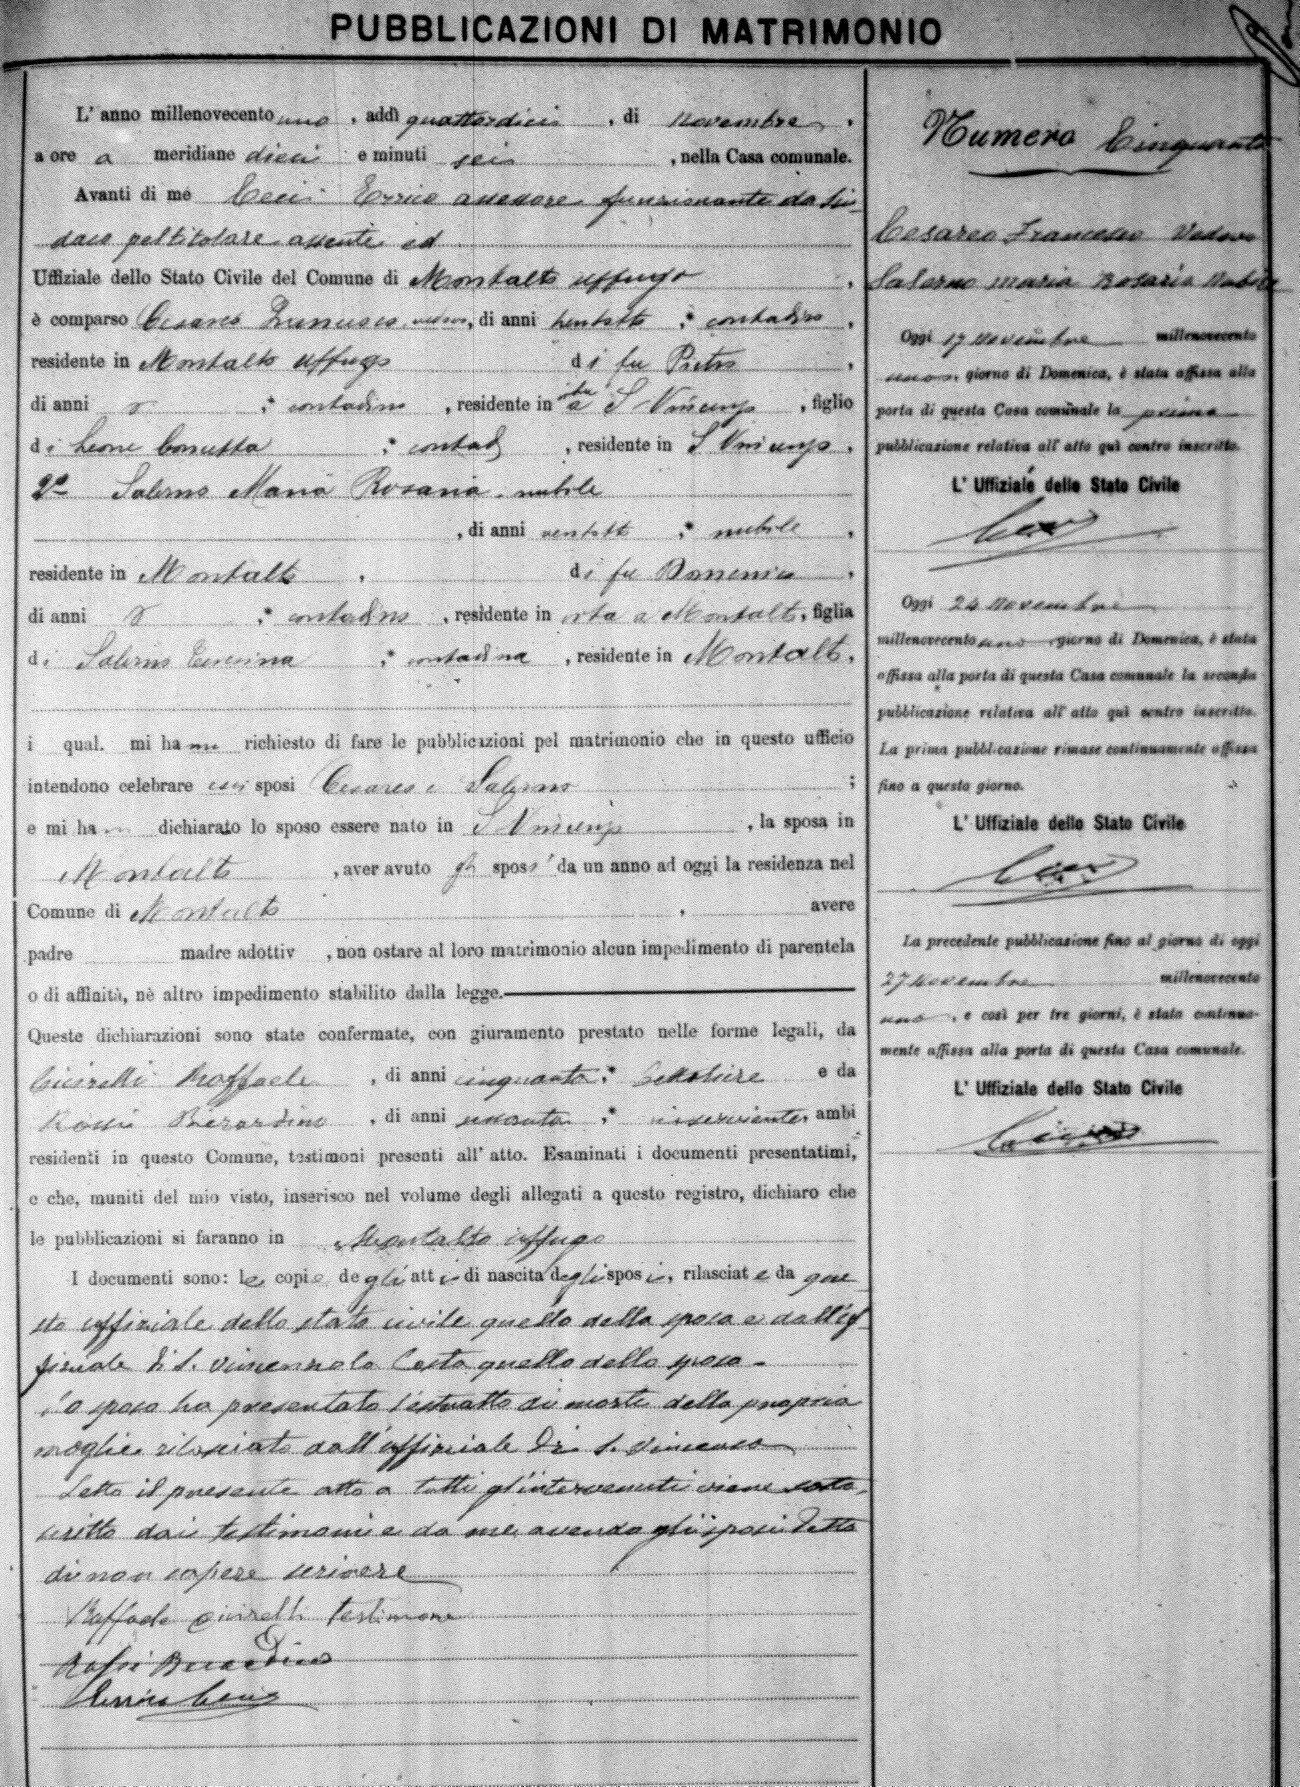 PUBBLICAZIONI DI MATRIMONIO
L' anno millenovecento uno, addì quattordici, di novembre,
a ore a meridiane dieci e minuti seis, nella Casa comunale.
Avanti di me Ceci Errico assessore funzionante da Sin-
daco pel titolare assente ed
Uffiziale dello Stato Civile del Comune di Montalto uffugo,
è comparso Cesareo Francesco vedovo, di anni trentotto, contadino,
residente in Montalto uffugo di fu Pietro,
di anni contadino, residente in a S Vincenzo, figlio
di Leone contad, residente in S Vincenzo.
2° Salerno Maria Rosaria nubile
, di anni ventotto, nubile,
residente in Montalto, di fu Domenico,
di anni contadino, residente in vita a Montalto, figlia
di Salerno contadina, residente in Montalto.
i qual. mi hanno richiesto di fare le pubblicazioni pel matrimonio che in questo ufficio
intendono celebrare essi sposi Cesareo e Salerno;
e mi han dichiarato lo sposo essere nato in S Vincenzo, la sposa in
Montalto, aver avuto gli sposi da un anno ad oggi la residenza nel
Comune di Montalto, avere
padre madre adottiv, non ostare al loro matrimonio alcun impedimento di parentela
o di affinità, nè altro impedimento stabilito dalla legge.
Queste dichiarazioni sono state confermate, con giuramento prestato nelle forme legali, da
Raffaele, di anni cinquanta, e da
Rossi Berardino, di anni sessanta, inserviente, ambi
residenti in questo Comune, testimoni presenti all' atto. Esaminati i documenti presentatimi,
e che, muniti del mio visto, inserisco nel volume degli allegati a questo registro, dichiaro che
le pubblicazioni si faranno in Montalto uffugo
I documenti sono: le copie degli atti di nascita degli sposi, rilasciate da que
sto uffiziale dello stato civile quella della sposa e dall'uf
fiziale di S. Vincenzo la Costa quella dello sposo -
Lo sposo ha presentato l'estratto di morte della propria
moglie rilasciato dall'uffiziale di S. Vincenzo
Letto il presente atto a tutti gl'intervenuti viene sotto
scritto dai testimoni e da me avendo gli sposi detto
di non sapere scrivere
Raffaele testimone
Rossi Berardino
Errico Ceci
Numero Cinquanta
Cesareo Francesco Vedovo
Salerno Maria Rosaria Nubile
Oggi 17 Novembre millenovecento
uno giorno di Domenica, è stata affissa alla
porta di questa Casa comunale la prima
pubblicazione relativa all' atto quì contro inscritto.
L' Uffiziale dello Stato Civile
Ceci
Oggi 24 Novembre
millenovecento uno giorno di Domenica, è stata
affissa alla porta di questa Casa comunale la seconda
pubblicazione relativa all' atto quì contro inscritto.
La prima pubblicazione rimase continuamente affissa
fino a questo giorno.
L' Uffiziale dello Stato Civile
Ceci
La precedente pubblicazione fino al giorno di oggi
27 Novembre millenovecento
uno, e così per tre giorni, è stata continua-
mente affissa alla porta di questa Casa comunale.
L' Uffiziale dello Stato Civile
Ceci